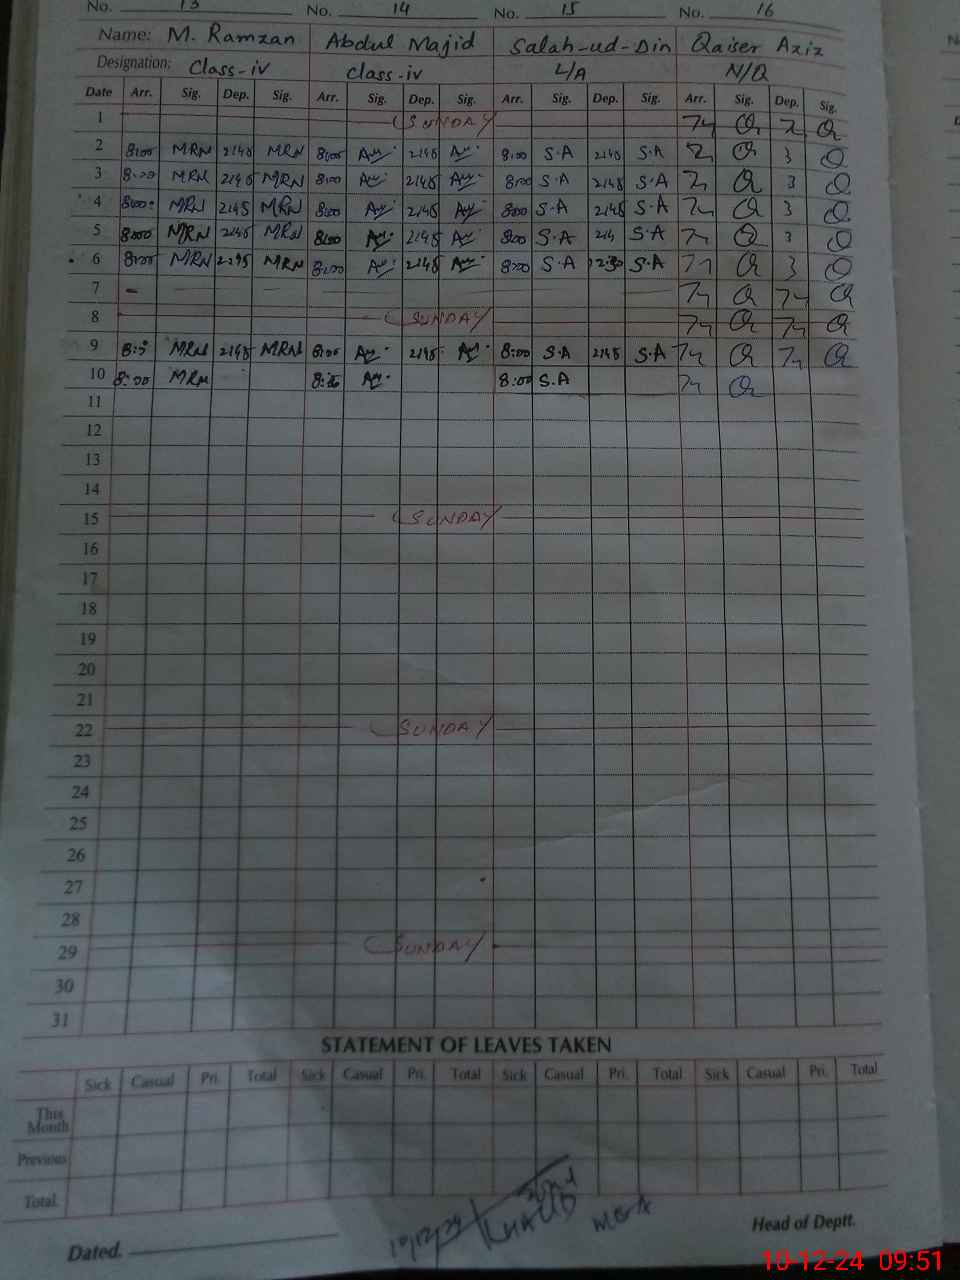 No. 13 No. 14 No. 15 No. 16
Name: M. Ramzan Abdul Majid Salah-ud-Din Qaiser Aziz
Designation: Class-iv class-iv L/A N/Q
Date Arr. Sig. Dep. Sig. Arr. Sig. Dep. Sig. Arr. Sig. Dep. Sig. Arr. Sig. Dep. Sig.
1 SUNDAY
2 8:00 MRN 2:45 MRN 8:00 2:45 8:00 S.A 2:45 S.A 3
3 8:00 MRN 2:45 MRN 8:00 2:45 8:00 S.A 2:45 S.A 3
4 8:00 MRN 2:45 MRN 8:00 2:45 8:00 S.A 2:45 S.A 3
5 8:00 MRN 2:45 MRN 8:00 2:45 8:00 S.A S.A 3
6 8:00 MRN 2:45 MRN 8:00 2:45 8:00 S.A 12:30 S.A 3
7
8 SUNDAY
9 MRN 2:45 MRN 8:00 2:45 8:00 S.A 2:45 S.A
10 8:00 MRN 8:00 S.A
11
12
13
14
15 SUNDAY
16
17
18
19
20
21
22 SUNDAY
23
24
25
26
27
28
29 SUNDAY
30
31
STATEMENT OF LEAVES TAKEN
Sick Casual Pri. Total Sick Casual Pri. Total Sick Casual Pri. Total Sick Casual Pri. Total
This Month
Previous
Total
10/12/24 MEA
Dated. Head of Deptt.
10-12-24 09:51